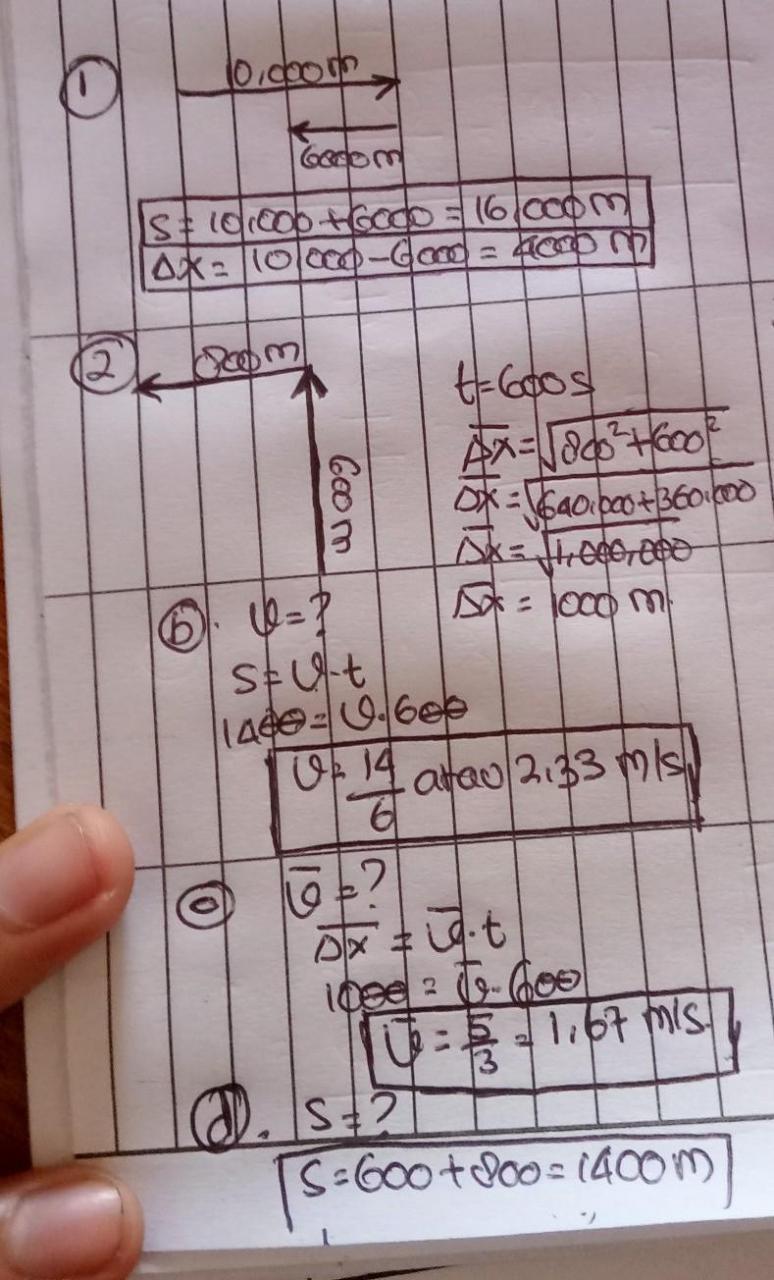 ① 10.000 m
6000 m
S = 10.000 + 6000 = 16.000 m
Δx = 10.000 - 6000 = 4000 m
② 800 m
600 m
t = 600 s
Δx̅ = √800² + 600²
Δx̅ = √640.000 + 360.000
Δx̅ = √1,000,000
Δx̅ = 1000 m.
ⓑ. v = ?
S = v . t
1400 = v. 600
v = 14/6 atau 2,33 m/s
v̅ = ?
Δx̅ = v̅ . t
1000 = v̅ . 600
v̅ = 5/3 = 1,67 m/s.
ⓓ. S = ?
S = 600 + 800 = 1400 m